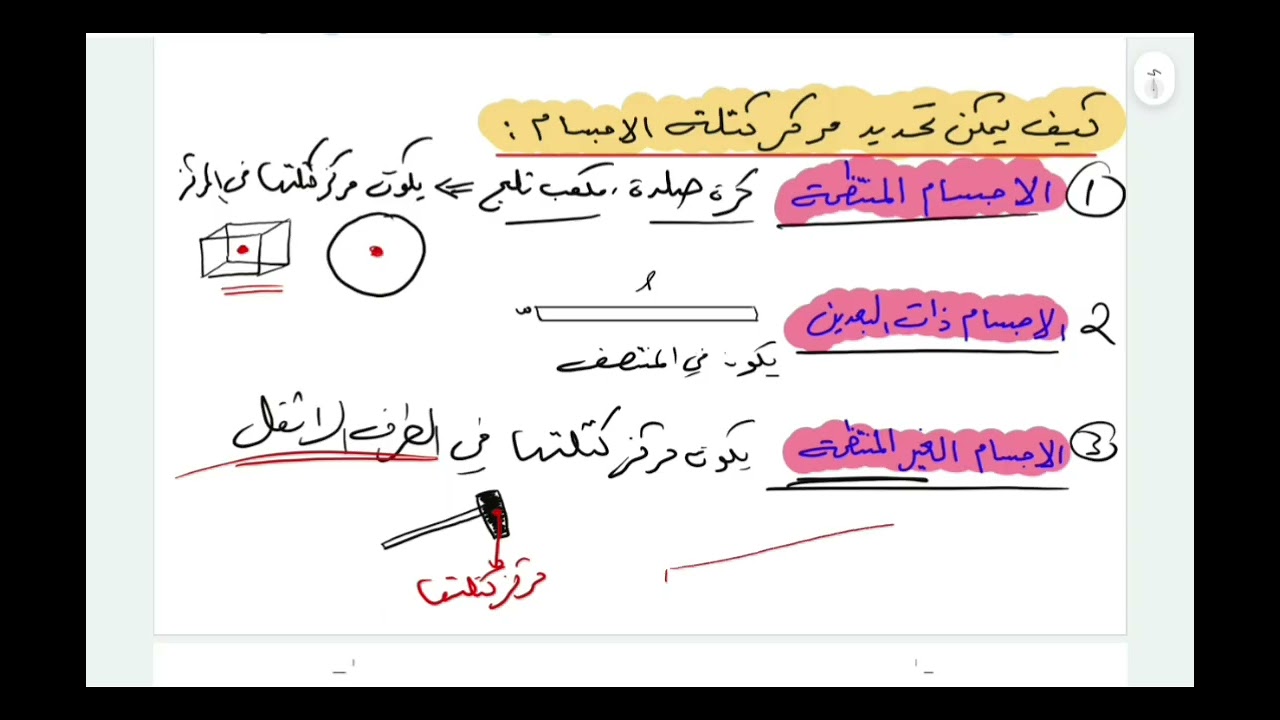 كيف يمكن تحديد مركز كتلة الاجسام :
① الاجسام المنتظمة كرة صلدة ، مكعب ثلج ⇐ يكون مركز كتلتها في المركز
2 الاجسام ذات البعدين
يكون في المنتصف
③ الاجسام الغير المنتظمة يكون مركز كتلتها في الطرف الاثقل
مركز كتلتها